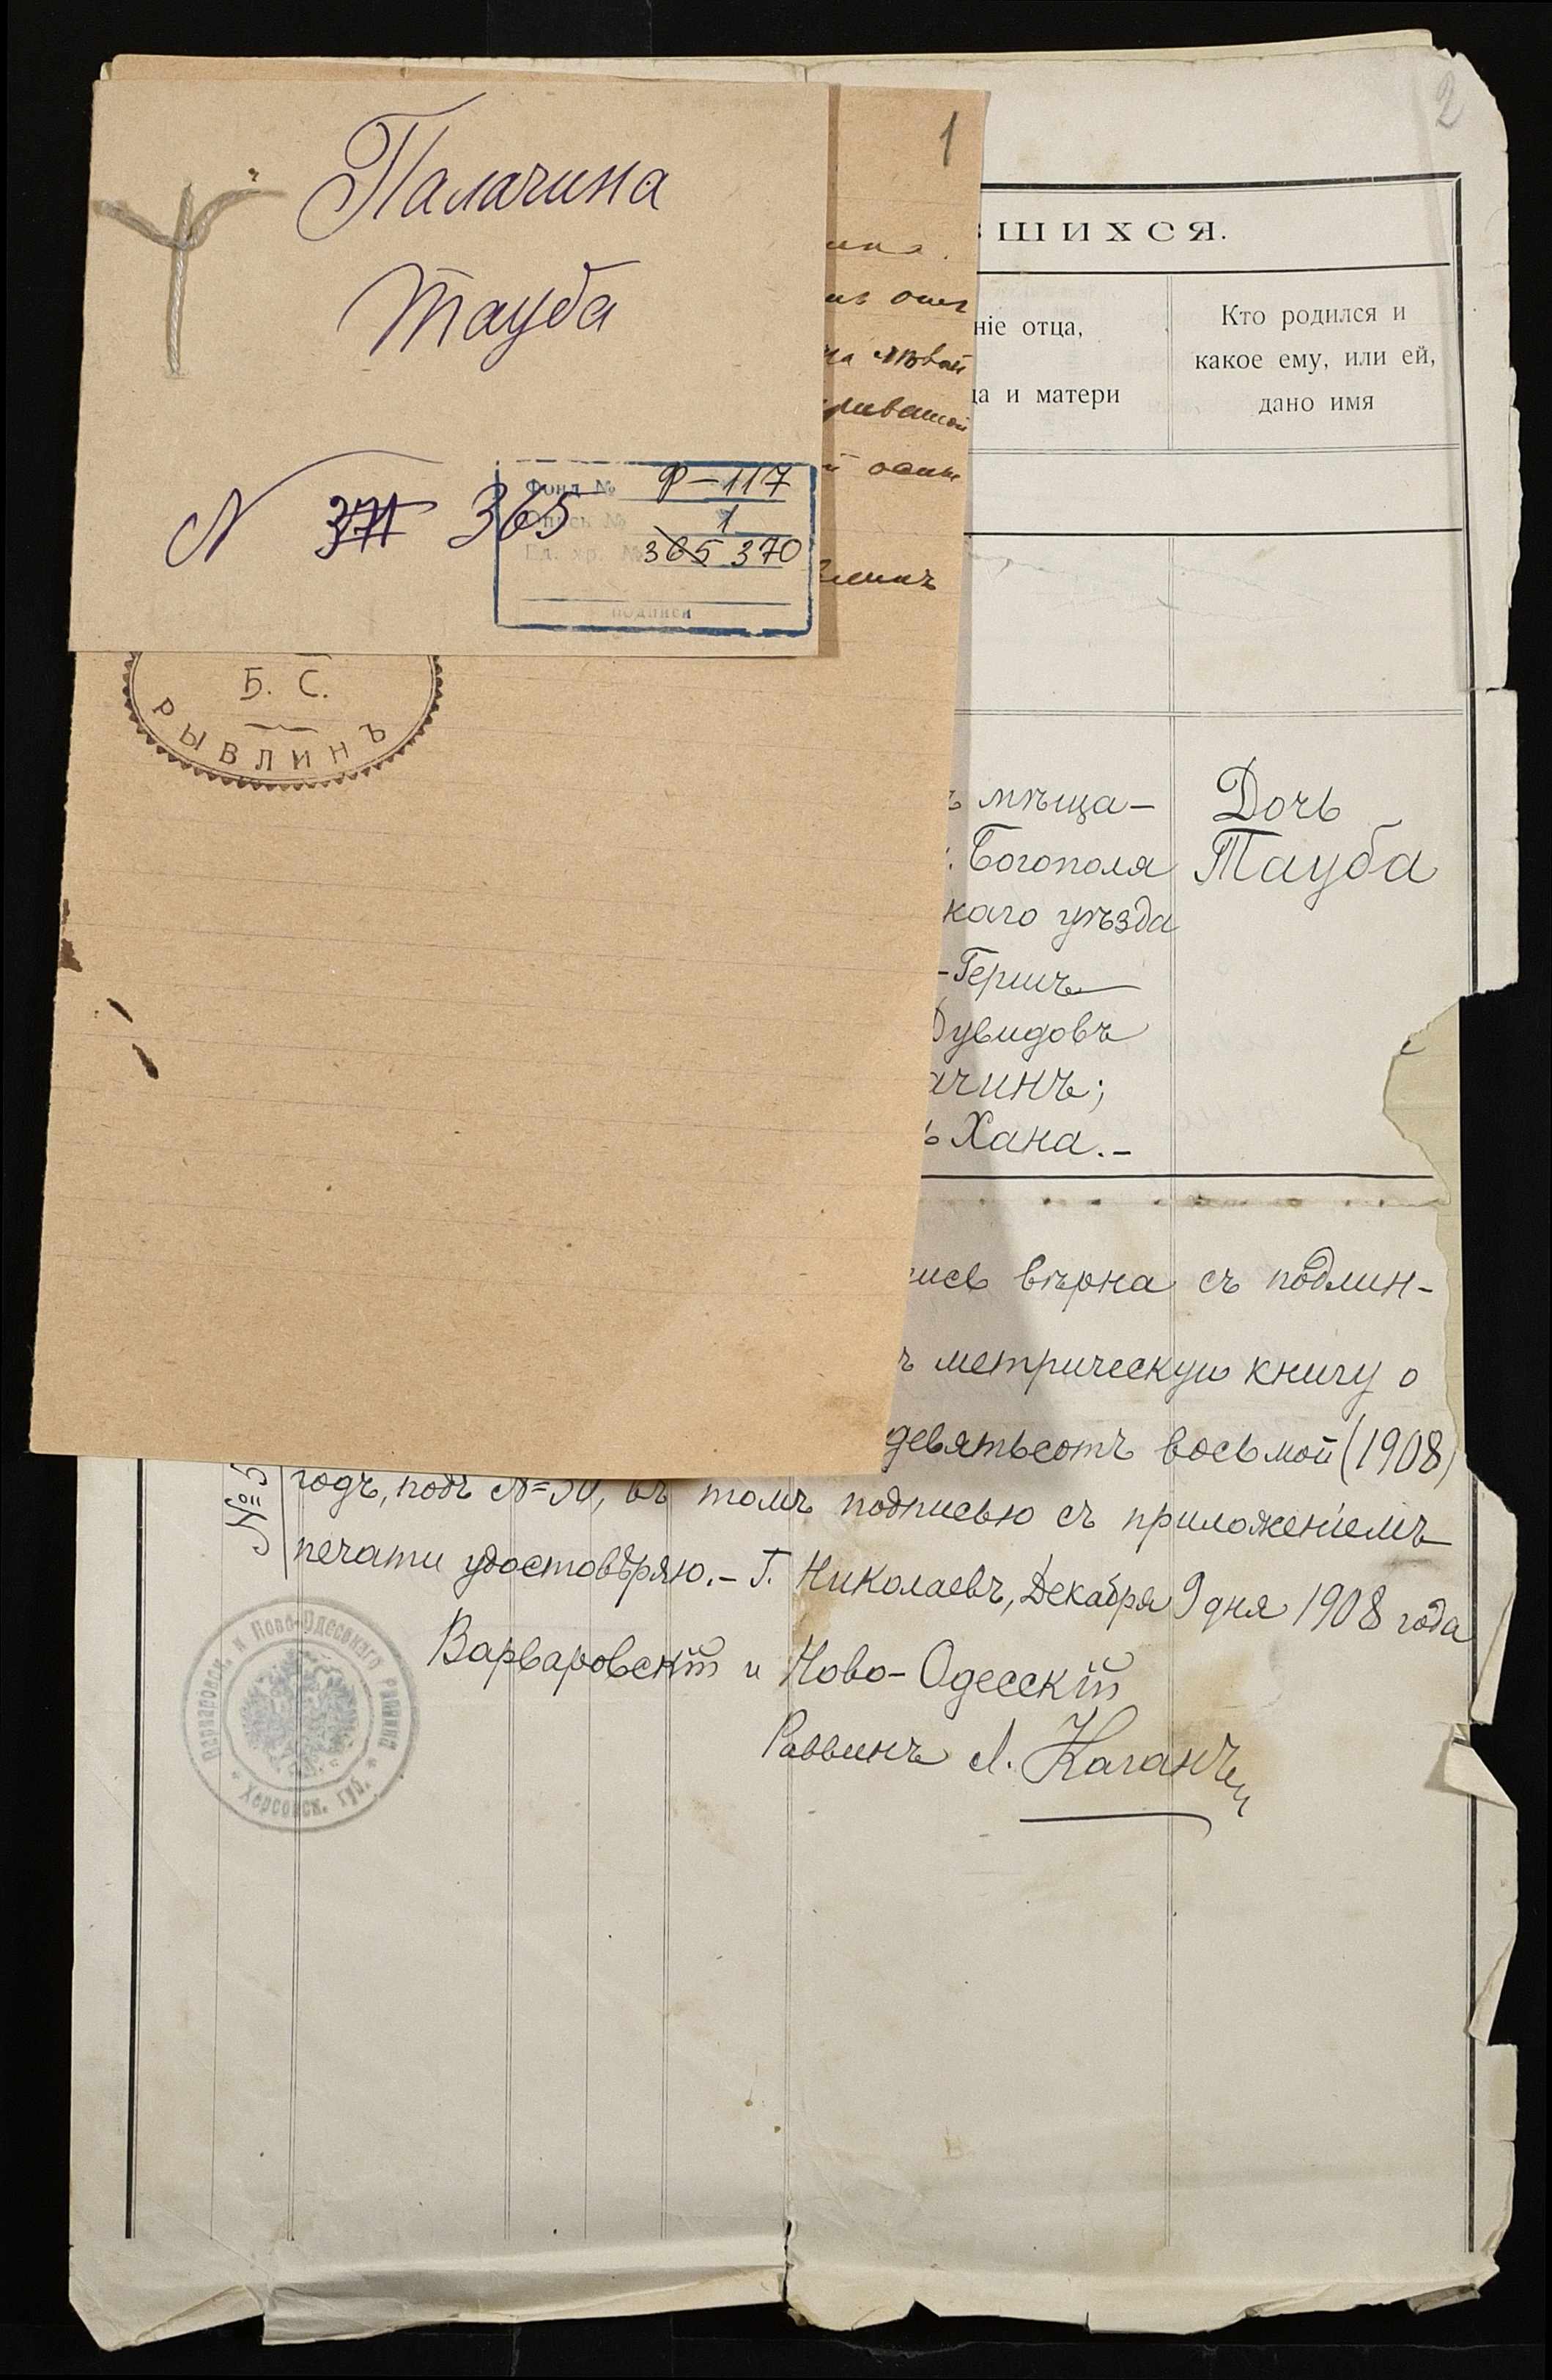 Палачина
Тауба
N 371 365
Фонд № Ф-117
Опись № 1
Ед. хр. № 365 370
подписи
1
2
Б. С.
РЫВЛИНЪ
ШИХСЯ.
ніе отца,
ца и матери
Кто родился и
какое ему, или ей,
дано имя
мѣща-
Богополя
каго уѣзда
-Гершъ
Дувидовъ
ачинъ;
ь Хана.-
Дочь
Тауба
пись вѣрна съ подлин-
ъ метрическую книгу о
девятьсотъ восьмой (1908)
годъ, подъ № 50, въ томъ подписью съ приложеніемъ
печати удостовѣряю.- Г. Николаевъ, Декабря 9 дня 1908 года
Варваровскій и Ново-Одесскій
Раввинъ Л. Каганъ
№ 5
Варваровск. и Ново-Одесскаго Раввина
Херсонск. губ.